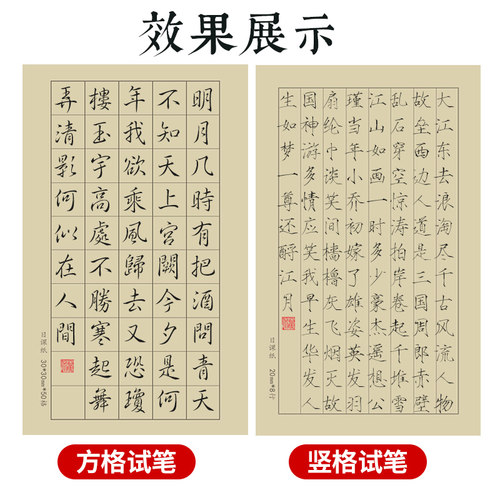 效果展示
明月几時有把酒問青天
不知天上宮闕今夕是何
年我欲乘風歸去又恐瓊
樓玉宇高處不勝寒起舞
弄清影何似在人間
日课纸 30*30mm*50格
大江东去浪淘尽千古风流人物
故垒西边人道是三国周郎赤壁
乱石穿空惊涛拍岸卷起千堆雪
江山如画一时多少豪杰遥想公
瑾当年小乔初嫁了雄姿英发羽
扇纶巾谈笑间樯橹灰飞烟灭故
国神游多情应笑我早生华发人
生如梦一尊还酹江月
日课纸 20mm*8行
方格试笔
竖格试笔